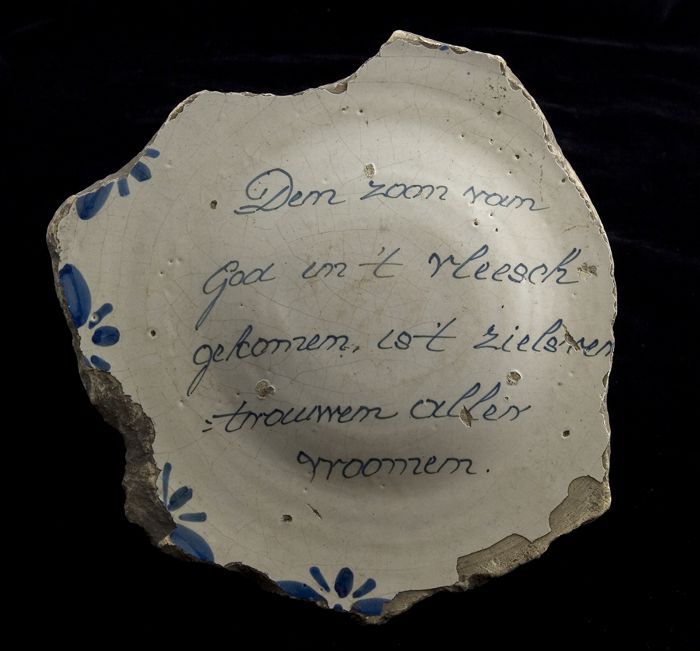 Den zoon van
God in 't vleesch
gekomen, is 't zielsver
=trouwen aller
vroomen.